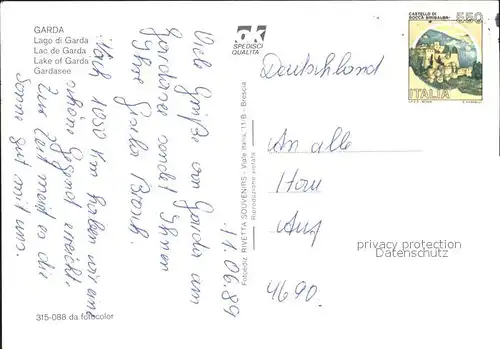 GARDA
Lago di Garda
Lac de Garda
Lake of Garda
Gardasee
OK
SPEDISCI
QUALITÀ
CASTELLO DI
ROCCA SINIBALDA
550
ITALIA
Deutschland
An alle
4690
11.06.89
Viele Grüße von Garda am
Gardasee sendet Ihnen
Ihre Gisela
Nach 1050 km haben wir eine
schöne Gegend erreicht.
Zur Zeit meint es die
Sonne gut mit uns.
Fotoediz. RIVETTA SOUVENIRS - Viale Italia, 11/B - Brescia
Riproduzione vietata
privacy protection
Datenschutz
315-088 da fotocolor